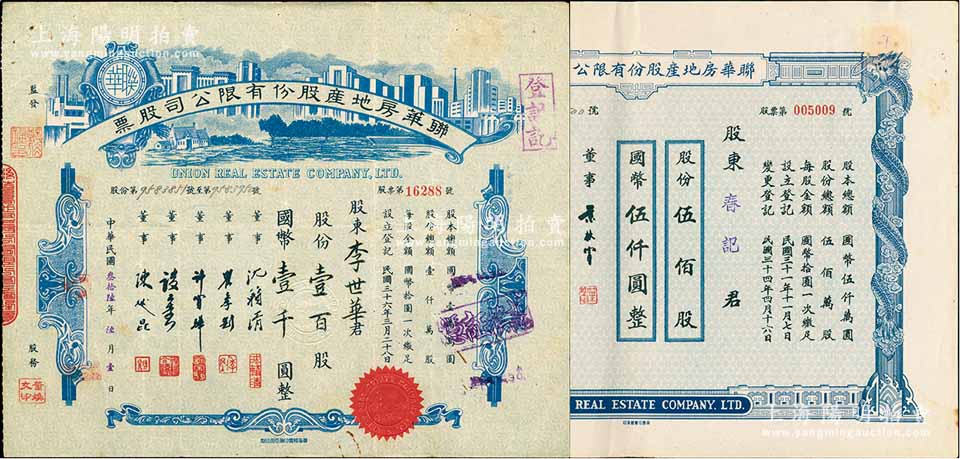 上海陽明拍賣
www.yangmingauction.com
聯華
聯華房地產股份有限公司股票
UNION REAL ESTATE COMPANY, LTD.
監發
登記訖
股票第16288號
股份第 號至第 號
股本總額 國幣 圓
股份總額 壹仟萬股
每股金額 國幣拾圓一次繳足
設立登記 民國三十六年三月二十八日
股東 李世華君
股份壹百股
國幣壹千圓整
董事
董事
董事
董事
董事
中華民國叁拾陸年陸月壹日
股務
聯華房地產股份有限公
股票第 005009 號
號
股本總額 國幣伍仟萬圓
股份總額 伍佰萬股
每股金額 國幣拾圓一次繳足
設立登記 民國三十一年十一月七日
變更登記 民國三十四年四月十六日
股東 春記 君
股份伍佰股
國幣伍仟圓整
董事
REAL ESTATE COMPANY, LTD.
上海陽明拍賣
www.yangmingauction.com